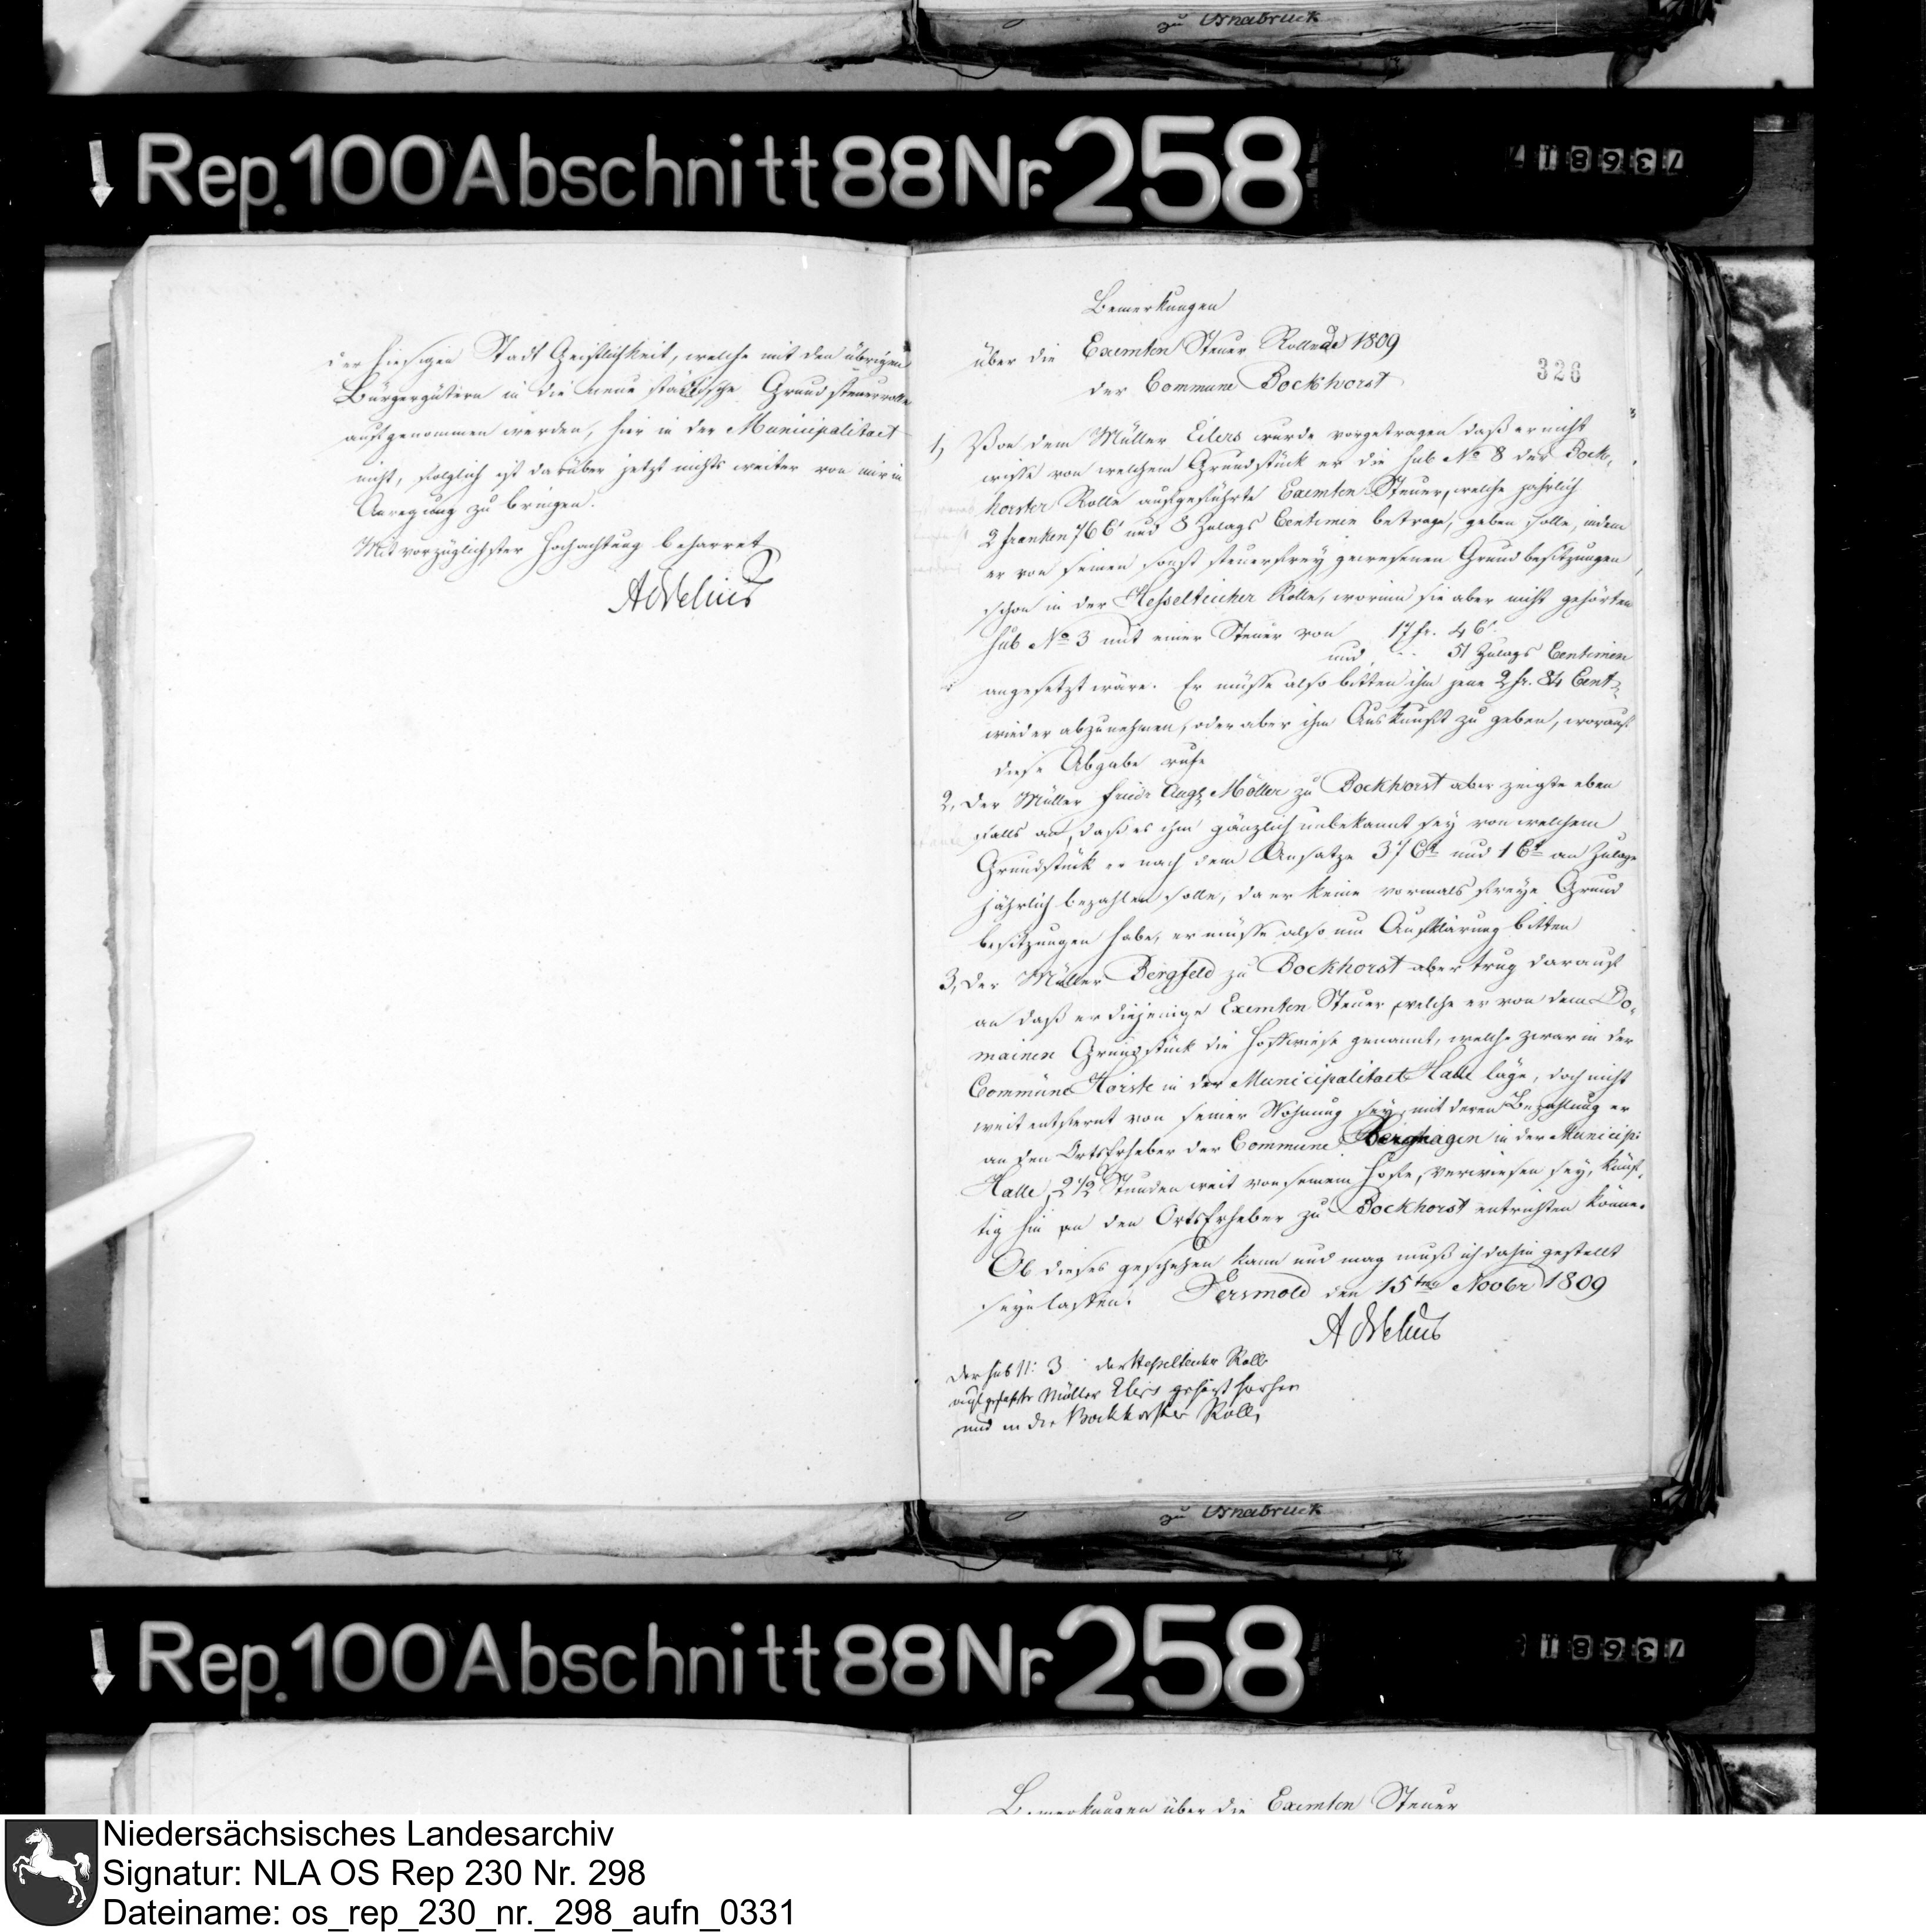 zu Osnabruck
Rep. 100 Abschnitt 88 Nr. 258
736817
der hiesigen Stadt Geistlichkeit, welche mit den übrigen
Bürgergütern in die neue städtische Grundsteuerrolle
aufgenommen werden, hier in der Municipalitaet
nicht, folglich ist darüber jetzt nichts weiter von mir in
Anregung zu bringen.
Mit vorzüglichster Hochachtung beharret
Bemerkungen
über die Exemten Steuer Rolle de 1809
der Commune Bockhorst
328
1, Von dem Müller Eilers wurde vorgetragen daß er nicht
wisse von welchem Grundstück er die sub No 8 der Bock-
horster Rolle aufgeführte Exemten Steuer, welche jährlich
2 franken 76 Ct und 8 Zulags Centimen betrage, geben solle, indem
er von seinen sonst steuerfrey gewesenen Grundbesitzungen
schon in der Hesselteicher Rolle, worinn sie aber nicht gehörten
sub No 3 mit einer Steuer von 17 fr. 4 Ct.
und -- 51 Zulags Centimen
angesetzt wäre. Er müsse also bitten ihm jene 2 fr. 84 Cent.
wieder abzunehmen, oder aber ihm Auskunft zu geben, worauf
diese Abgabe ruhe
2, Der Müller Friedr Aug Möller zu Bockhorst aber zeigte eben
falls an, daß es ihm gänzlich unbekannt sey von welchem
Grundstück er nach dem Ansatze 37 Ct und 1 Ct an Zulage
jährlich bezahlen solle, da er keine vormals freye Grund
besitzungen habe, er müsse also um Aufklärung bitten
3, Der Müller Bergfeld zu Bockhorst aber trug darauf
an daß er diejenige Exemten Steuer welche er von dem Do-
mainen Grundstück die Hoffwiese genannt, welche zwar in der
Commüne Hörste in der Municipalitaet Halle läge, doch nicht
weit entfernt von seiner Wohnung sey, mit deren Bezahlung er
an den Ortserheber der Commune in der Municip:
Halle, 2 1/2 Stunden weit von seinem Hofe, verwiesen sey, künf-
tig hin an den Ortserheber zu Bockhorst entrichten könne.
Ob dieses geschehen kann und mag muß ich dahin gestellt
seyn lassen. Versmold den 15ten Novbr 1809
Der sub N: 3 der Hesselteicher Rolle
aufgeführte Müller Eilers gehört hierher
und in die Bockhorster Rolle,
zu Osnabruck
Rep. 100 Abschnitt 88 Nr. 258
73681
Bemerkungen über die Exemten Steuer
Niedersächsisches Landesarchiv
Signatur: NLA OS Rep 230 Nr. 298
Dateiname: os_rep_230_nr._298_aufn_0331